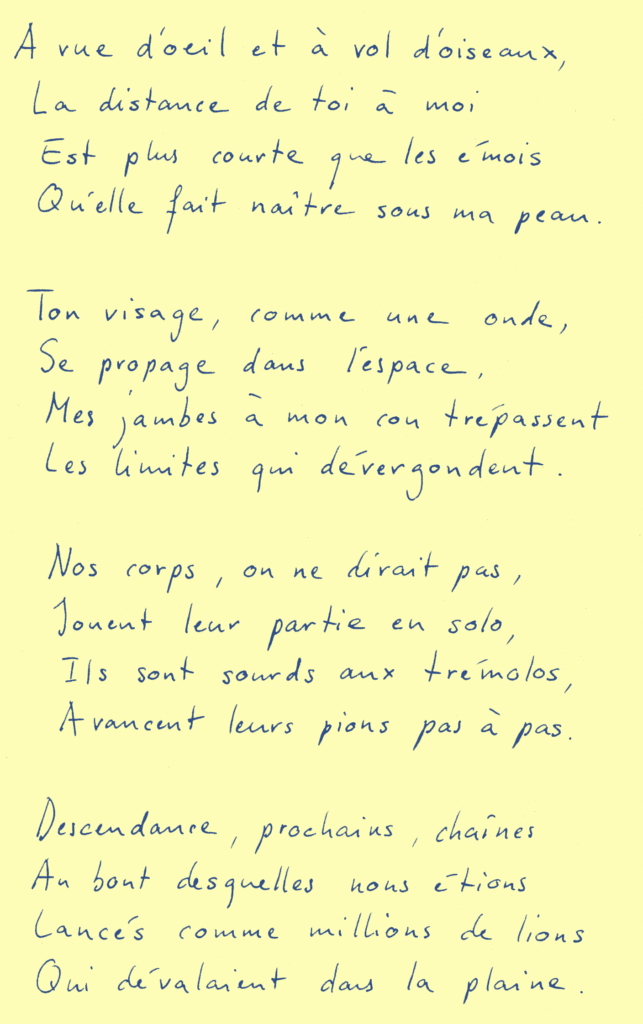 A vue d'oeil et à vol d'oiseaux,
La distance de toi à moi
Est plus courte que les émois
Qu'elle fait naître sous ma peau.
Ton visage, comme une onde,
Se propage dans l'espace,
Mes jambes à mon cou trépassent
Les limites qui dévergondent.
Nos corps, on ne dirait pas,
Jouent leur partie en solo,
Ils sont sourds aux trémolos,
Avancent leurs pions pas à pas.
Descendance, prochains, chaînes
Au bout desquelles nous étions
Lancés comme millions de lions
Qui dévalaient dans la plaine.